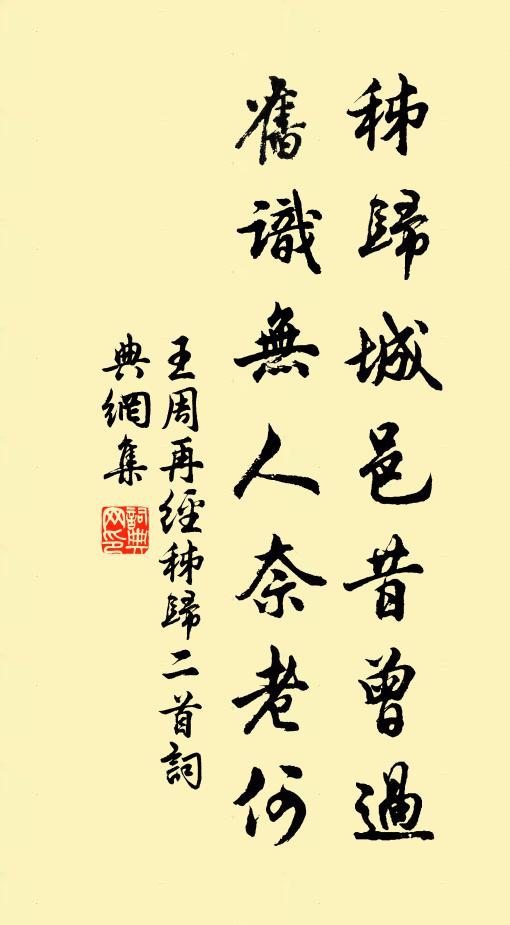 秭歸城邑昔曾過
舊識無人奈老何
王周再經秭歸二首詞
典網集
詞典网印